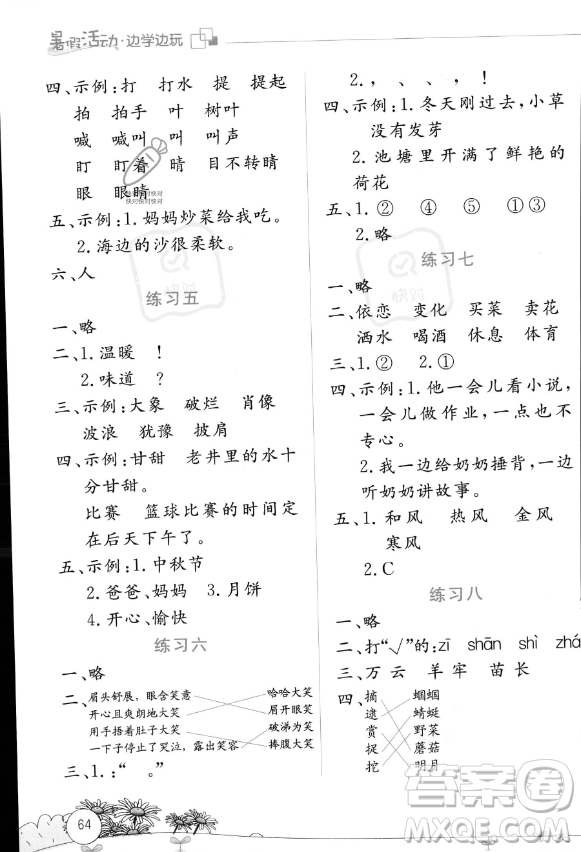 暑假活动·边学边玩
四、示例:打 打水 提 提起
拍 拍手 叶 树叶
喊 喊叫 叫 叫声
盯 盯着 睛 目不转睛
眼 眼睛
快对快对快对
快对快对快对
五、示例:1. 妈妈炒菜给我吃。
2. 海边的沙很柔软。
六、人
练习五
一、略
二、1. 温暖 !
2. 味道 ?
三、示例:大象 破烂 肖像
波浪 犹豫 披肩
四、示例:甘甜 老井里的水十
分甘甜。
比赛 篮球比赛的时间定
在后天下午了。
五、示例:1. 中秋节
2. 爸爸、妈妈 3. 月饼
4. 开心、愉快
练习六
一、略
二、眉头舒展,眼含笑意 哈哈大笑
开心且爽朗地大笑 眉开眼笑
用手捂着肚子大笑 破涕为笑
一下子停止了哭泣,露出笑容 捧腹大笑
三、1. :“ 。”
64
2. , 、 、 !
四、示例:1. 冬天刚过去,小草
没有发芽
2. 池塘里开满了鲜艳的
荷花
五、1. ② ④ ⑤ ① ③
2. 略
快对
练习七
一、略
二、依恋 变化 买菜 卖花
洒水 喝酒 休息 体育
三、1. ② 2. ①
四、示例:1. 他一会儿看小说,
一会儿做作业,一点也不
专心。
2. 我一边给奶奶捶背,一边
听奶奶讲故事。
五、1. 和风 热风 金风
寒风
2. C
练习八
一、略
二、打“√”的:zī shān shì zhá
三、万 云 羊 牢 苗 长
四、摘 蝈蝈
逮 蜻蜓
赏 野菜
捉 蘑菇
挖 明月
答案圈
MXQE.COM